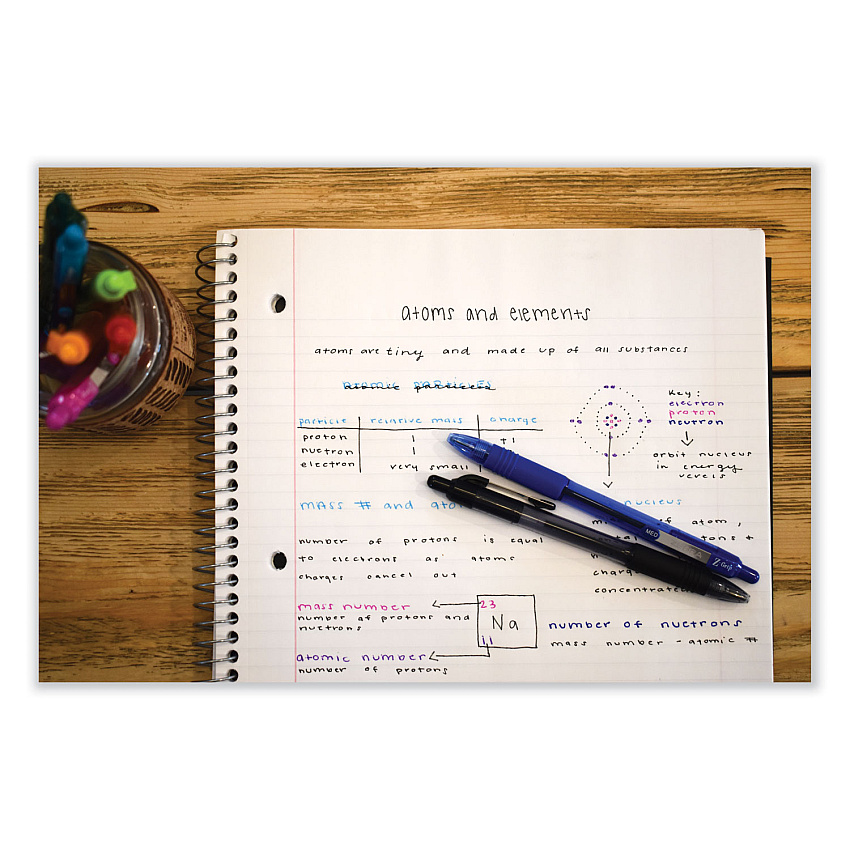 atoms and elements
atoms are tiny and made up of all substances
atomic particles
particle relative mass charge
proton 1 +1
nuetron 1
electron very small
Key:
electron
proton
neutron
orbit nucleus
in energy
nevels
mass # and
nucleus
number of protons is equal
to electrons as atoms
charges cancel out
of atom,
mass number
number of protons and
nuetrons
23
Na
11
atomic number
number of protons
number of nuetrons
mass number - atomic #
MED
Z Grip